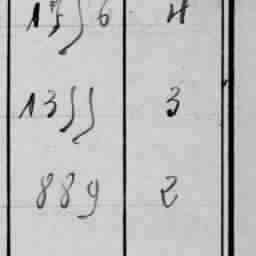 1356 4
1355 3
889 2